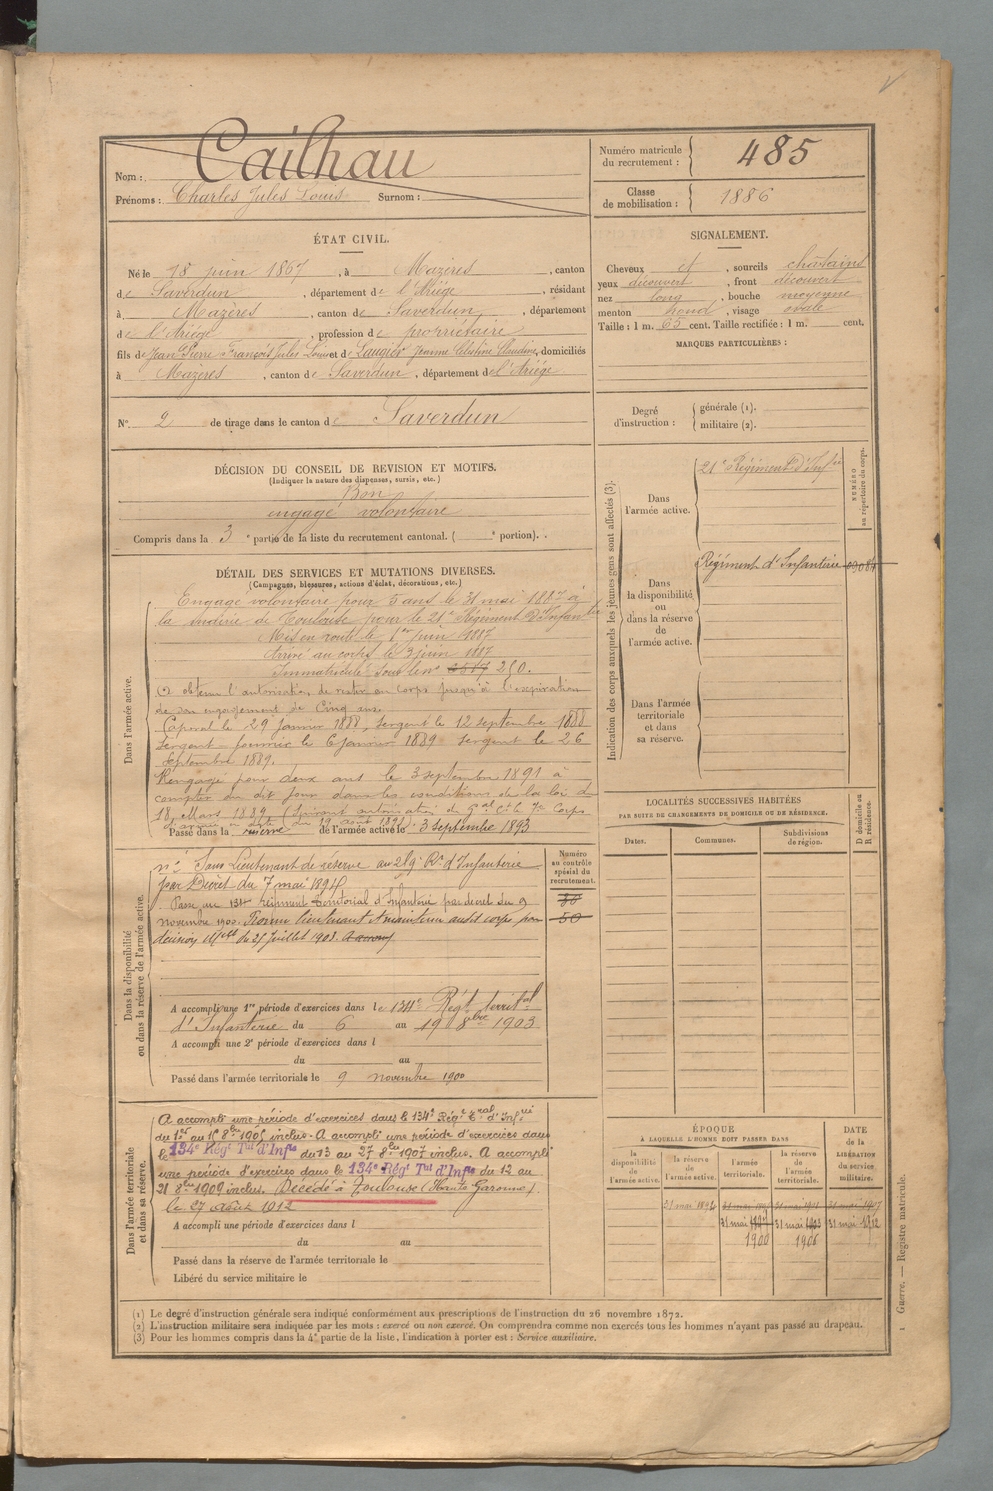 Nom : Cailhau
Prénoms : Charles Jules Louis Surnom :
Numéro matricule du recrutement : 485
Classe de mobilisation : 1886
ÉTAT CIVIL.
Né le 18 juin 1867, à Mazères, canton
de Saverdun, département de l'Ariége, résidant
à Mazères, canton de Saverdun, département
de l'Ariége, profession de propriétaire
fils de Jean Pierre François Jules Louis et de Laugier Jeanne Célestine Claudine, domiciliés
à Mazères, canton de Saverdun, département de l'Ariége.
N° 2 de tirage dans le canton de Saverdun
SIGNALEMENT.
Cheveux et, sourcils châtains
yeux découvert, front découvert
nez long, bouche moyenne
menton rond, visage ovale
Taille : 1 m. 65 cent. Taille rectifiée : 1 m. cent.
MARQUES PARTICULIÈRES :
Degré d'instruction : générale (1).
militaire (2).
DÉCISION DU CONSEIL DE REVISION ET MOTIFS.
(Indiquer la nature des dispenses, sursis, etc.)
Bon
engagé volontaire
Compris dans la 3e partie de la liste du recrutement cantonal. ( e portion).
DÉTAIL DES SERVICES ET MUTATIONS DIVERSES.
(Campagnes, blessures, actions d'éclat, décorations, etc.)
Dans l'armée active.
Engagé volontaire pour 5 ans le 31 mai 1887 à
la mairie de Toulouse pour le 21e Régiment d'Infanterie
Mis en route le 1er juin 1887
Arrivé au corps le 3 juin 1887
Immatriculé sous le no 250.
A obtenu l'autorisation de rester au corps jusqu'à l'expiration
de son engagement de Cinq ans.
Caporal le 29 janvier 1888, Sergent le 12 septembre 1888
Sergent fourrier le 6 janvier 1889 Sergent le 26
septembre 1889.
Rengagé pour deux ans le 3 septembre 1891 à
compter du dit jour dans les conditions de la loi du
18 Mars 1889 (Suivant autorisation du Gal Ct le 7e Corps
d'armée en date du 19 août 1891)
Passé dans la réserve de l'armée active le 3 septembre 1893
Dans la disponibilité ou dans la réserve de l'armée active.
Numéro au contrôle spécial du recrutement.
50
50
Sous Lieutenant de réserve au 259e Rt d'Infanterie
par Décret du 7 mai 1894
Passé au 134e Régiment territorial d'Infanterie par décret du 9
novembre 1900. Promu lieutenant et maintenu audit corps par
décision Melle du 25 Juillet 1903.
A accompli une 1re période d'exercices dans le 134e Régt territal
d'Infanterie du 6 au 19 8bre 1903
A accompli une 2e période d'exercices dans l
du au
Passé dans l'armée territoriale le 9 novembre 1900
Dans l'armée territoriale et dans sa réserve.
A accompli une période d'exercices dans le 134e Régt tral d'Infrie
du 1er au 15 8bre 1905 inclus. A accompli une période d'exercices dans
le 134e Régt Tal d'Infie du 13 au 27 8bre 1907 inclus. A accompli
une période d'exercices dans le 134e Régt Tal d'Infie du 12 au
21 8bre 1909 inclus. Décédé à Toulouse (Haute Garonne).
le 27 août 1912
A accompli une période d'exercices dans l
du au
Passé dans la réserve de l'armée territoriale le
Libéré du service militaire le
Indication des corps auxquels les jeunes gens sont affectés (3).
Dans l'armée active. 21e Régiment d'Infie
NUMÉRO au répertoire du corps.
Dans la disponibilité ou dans la réserve de l'armée active. Régiment d'Infanterie
Dans l'armée territoriale et dans sa réserve.
LOCALITÉS SUCCESSIVES HABITÉES
PAR SUITE DE CHANGEMENTS DE DOMICILE OU DE RÉSIDENCE.
Dates. Communes. Subdivisions de région. D domicile ou R résidence.
ÉPOQUE
À LAQUELLE L'HOMME DOIT PASSER DANS
la disponibilité de l'armée active. la réserve de l'armée active. l'armée territoriale. la réserve de l'armée territoriale. DATE de la LIBÉRATION du service militaire.
31 mai 1892 31 mai 1897 31 mai 1901 31 mai 1907
31 mai 1900 31 mai 1906 31 mai 1912
(1) Le degré d'instruction générale sera indiqué conformément aux prescriptions de l'instruction du 26 novembre 1872.
(2) L'instruction militaire sera indiquée par les mots : exercé ou non exercé. On comprendra comme non exercés tous les hommes n'ayant pas passé au drapeau.
(3) Pour les hommes compris dans la 4e partie de la liste, l'indication à porter est : Service auxiliaire.
1 Guerre. — Registre matricule.